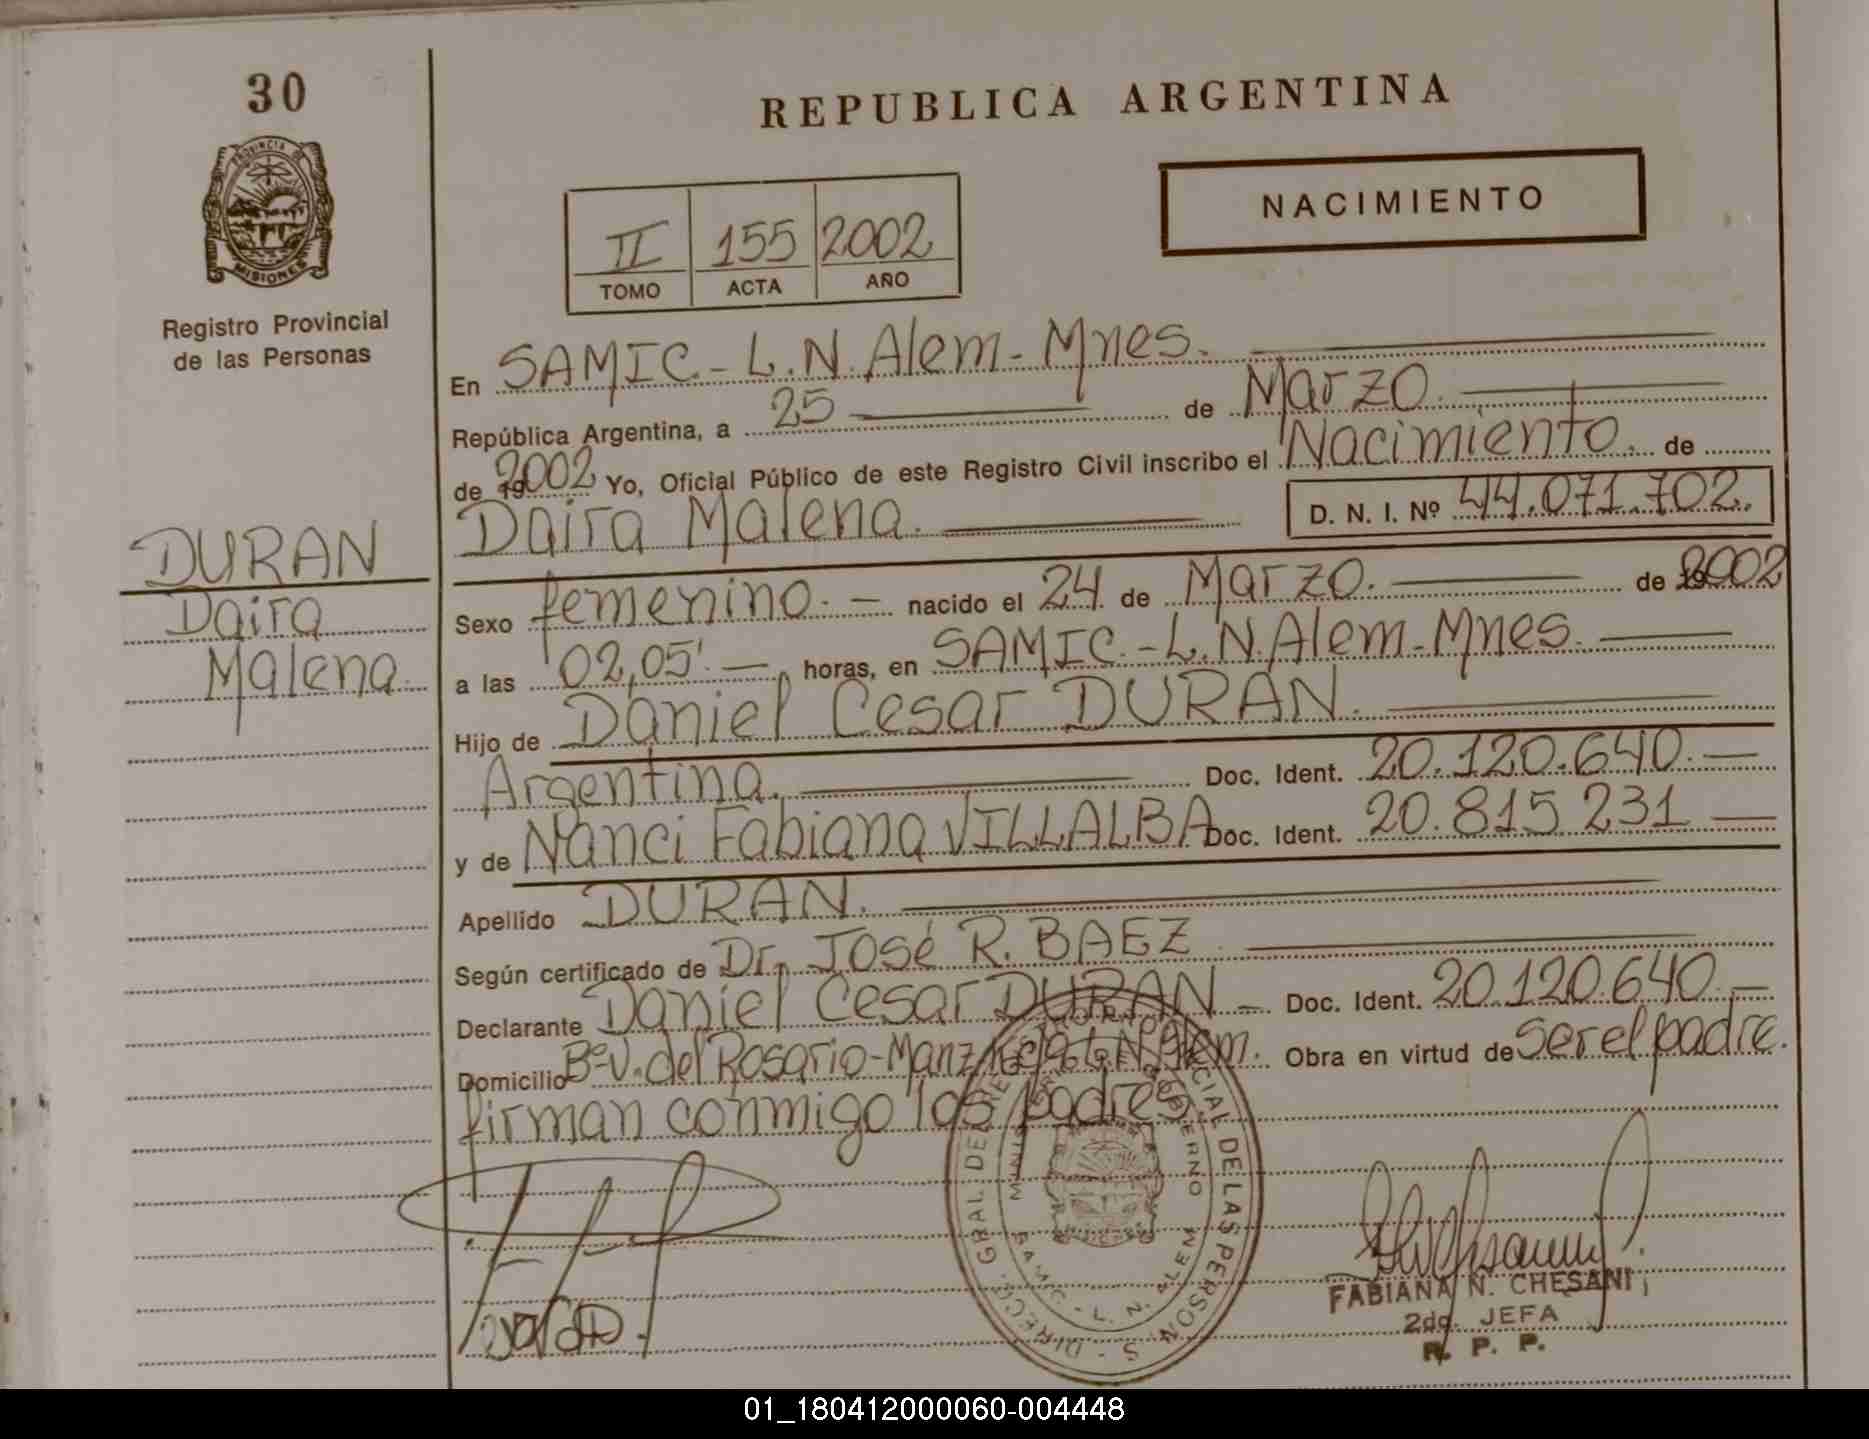 30
PROVINCIA DE
MISIONES
Registro Provincial
de las Personas
DURAN
Daira
Malena.
REPUBLICA ARGENTINA
NACIMIENTO
II 155 2002
TOMO ACTA AÑO
En SAMIC.- L.N.Alem- Mnes.
República Argentina, a 25 de Marzo.
de 2002 Yo, Oficial Público de este Registro Civil inscribo el Nacimiento. de
Daira Malena. D. N. I. Nº 44.071.702.
Sexo femenino. nacido el 24 de Marzo. de 2002
a las 02,05'. horas, en SAMIC.-L.N.Alem-Mnes.
Hijo de Daniel Cesar DURAN.
Argentina. Doc. Ident. 20.120.640.
y de Nanci Fabiana VILLALBA Doc. Ident. 20.815 231
Apellido DURAN.
Según certificado de Dr. José R. BAEZ
Declarante Daniel Cesar DURAN Doc. Ident. 20.120.640
Domicilio Bº V. del Rosario-Manz L.N.Alem. Obra en virtud de ser el padre.
firman conmigo los padres
DIRECC. GRAL DE REGISTRO PROVINCIAL DE LAS PERSONAS
MINISTERIO GOBIERNO
SAMIC. - L. N. ALEM
FABIANA N. CHESANI
2da. JEFA
R. P. P.
01_180412000060-004448